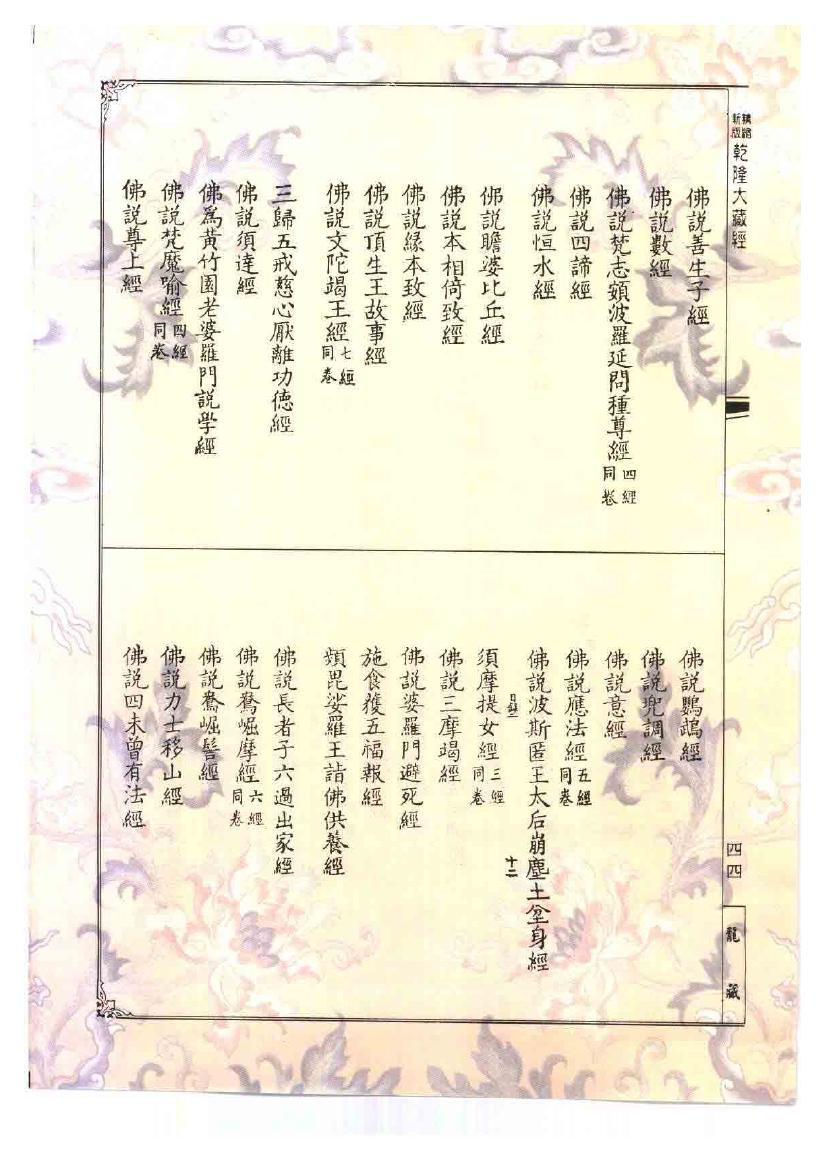 精縮
新版
乾隆大藏經
四四
龍藏
佛說善生子經
佛說數經
佛說梵志頞波羅延問種尊經四經同卷
佛說四諦經
佛說恒水經
佛說瞻婆比丘經
佛說本相倚致經
佛說緣本致經
佛說頂生王故事經
佛說文陀竭王經七經同卷
三歸五戒慈心厭離功德經
佛說須達經
佛爲黃竹園老婆羅門說學經
佛說梵魔喻經四經同卷
佛說尊上經
佛說鸚鵡經
佛說兜調經
佛說意經
佛說應法經五經同卷
佛說波斯匿王太后崩塵土坌身經
目錄
十二
須摩提女經三經同卷
佛說三摩竭經
佛說婆羅門避死經
施食獲五福報經
頻毘娑羅王詣佛供養經
佛說長者子六過出家經
佛說鴦崛摩經六經同卷
佛說鴦崛髻經
佛說力士移山經
佛說四未曾有法經